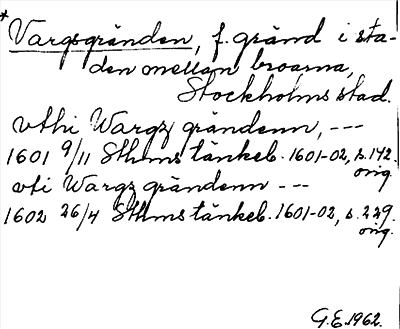 * Vargsgränden, f. gränd i sta-
den mellan broarna,
Stockholms stad.
vthi Wargz grändenn, ---
1601 9/11 Sthms tänkeb. 1601-02, s. 142.
orig.
vti Wargz grändenn ---
1602 26/4 Sthms tänkeb. 1601-02, s. 229.
orig.
G.E. 1962.